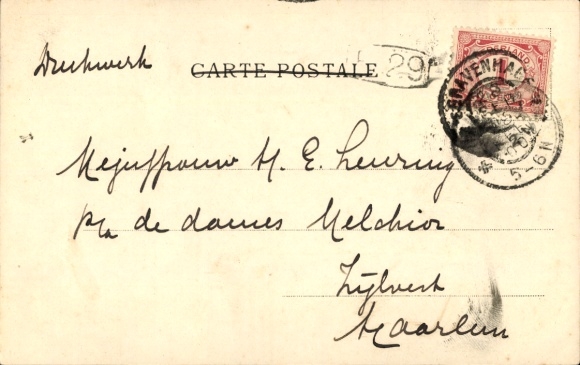 Drukwerk
CARTE POSTALE
29
NEDERLAND
1
GRAVENHAGE
5-6N
Mejuffrouw H. E. Leuring
p/a de dames Melchior
Zijlvest
Haarlem